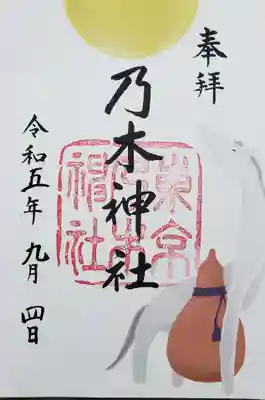 奉拝
乃木神社
東京
乃木
神社
令和五年 九月 四日